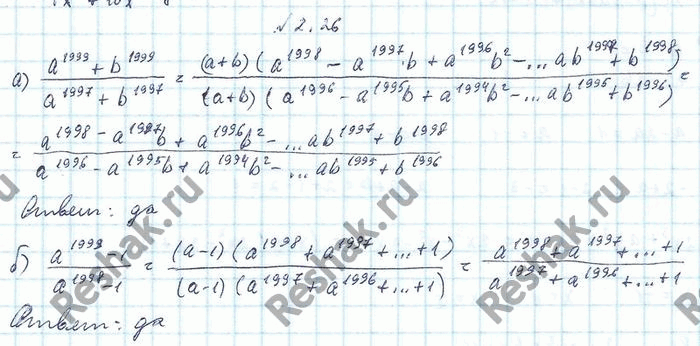 №2.26
а) (a^1999 + b^1999)/(a^1997 + b^1997) = ((a+b)(a^1998 − a^1997·b + a^1996 b² − ... ab^1997 + b^1998))/((a+b)(a^1996 − a^1995 b + a^1994 b² − ... ab^1995 + b^1996)) =
= (a^1998 − a^1997 b + a^1996 b² − ... ab^1997 + b^1998)/(a^1996 − a^1995 b + a^1994 b² − ... ab^1995 + b^1996)
Ответ: да
б) (a^1999 − 1)/(a^1998 − 1) = ((a−1)(a^1998 + a^1997 + ... + 1))/((a−1)(a^1997 + a^1996 + ... + 1)) = (a^1998 + a^1997 + ... + 1)/(a^1997 + a^1996 + ... + 1)
Ответ: да
Reshak.ru
Reshak.ru
Reshak.ru